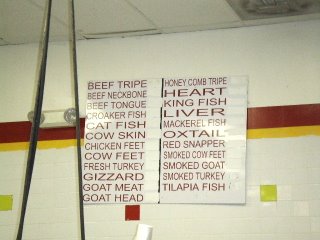 BEEF TRIPE
BEEF NECKBONE
BEEF TONGUE
CROAKER FISH
CAT FISH
COW SKIN
CHICKEN FEET
COW FEET
FRESH TURKEY
GIZZARD
GOAT MEAT
GOAT HEAD
HONEY COMB TRIPE
HEART
KING FISH
LIVER
MACKEREL FISH
OXTAIL
RED SNAPPER
SMOKED COW FEET
SMOKED GOAT
SMOKED TURKEY
TILAPIA FISH